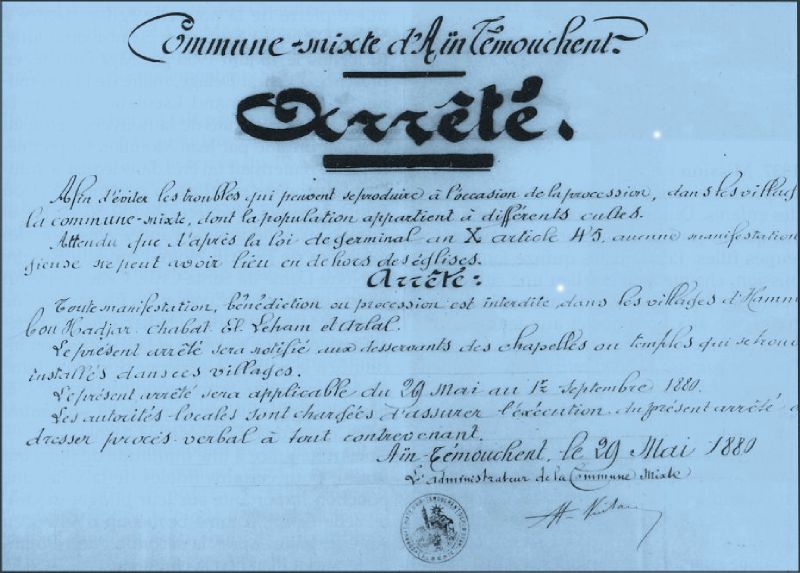 Commune-mixte d'Aïn Témouchent.
Arrêté.
Afin d'éviter les troubles qui peuvent se produire à l'occasion de la procession, dans les villag
la commune-mixte, dont la population appartient à différents cultes.
Attendu que d'après la loi de germinal an X article 45, aucune manifestation
gieuse ne peut avoir lieu en dehors des églises.
Arrête:
Toute manifestation, bénédiction ou procession est interdite dans les villages d'Hamm
bou Hadjar, chabat El Leham et Arlal.
Le présent arrêté sera notifié aux desservants des chapelles ou temples qui se trouv
installés dans ces villages.
Le présent arrêté sera applicable du 29 Mai au 1er Septembre 1880.
Les autorités locales sont chargées d'assurer l'exécution du présent arrêté
dresser procès-verbal à tout contrevenant.
Aïn-Témouchent, le 29 Mai 1880
L'administrateur de la Commune Mixte